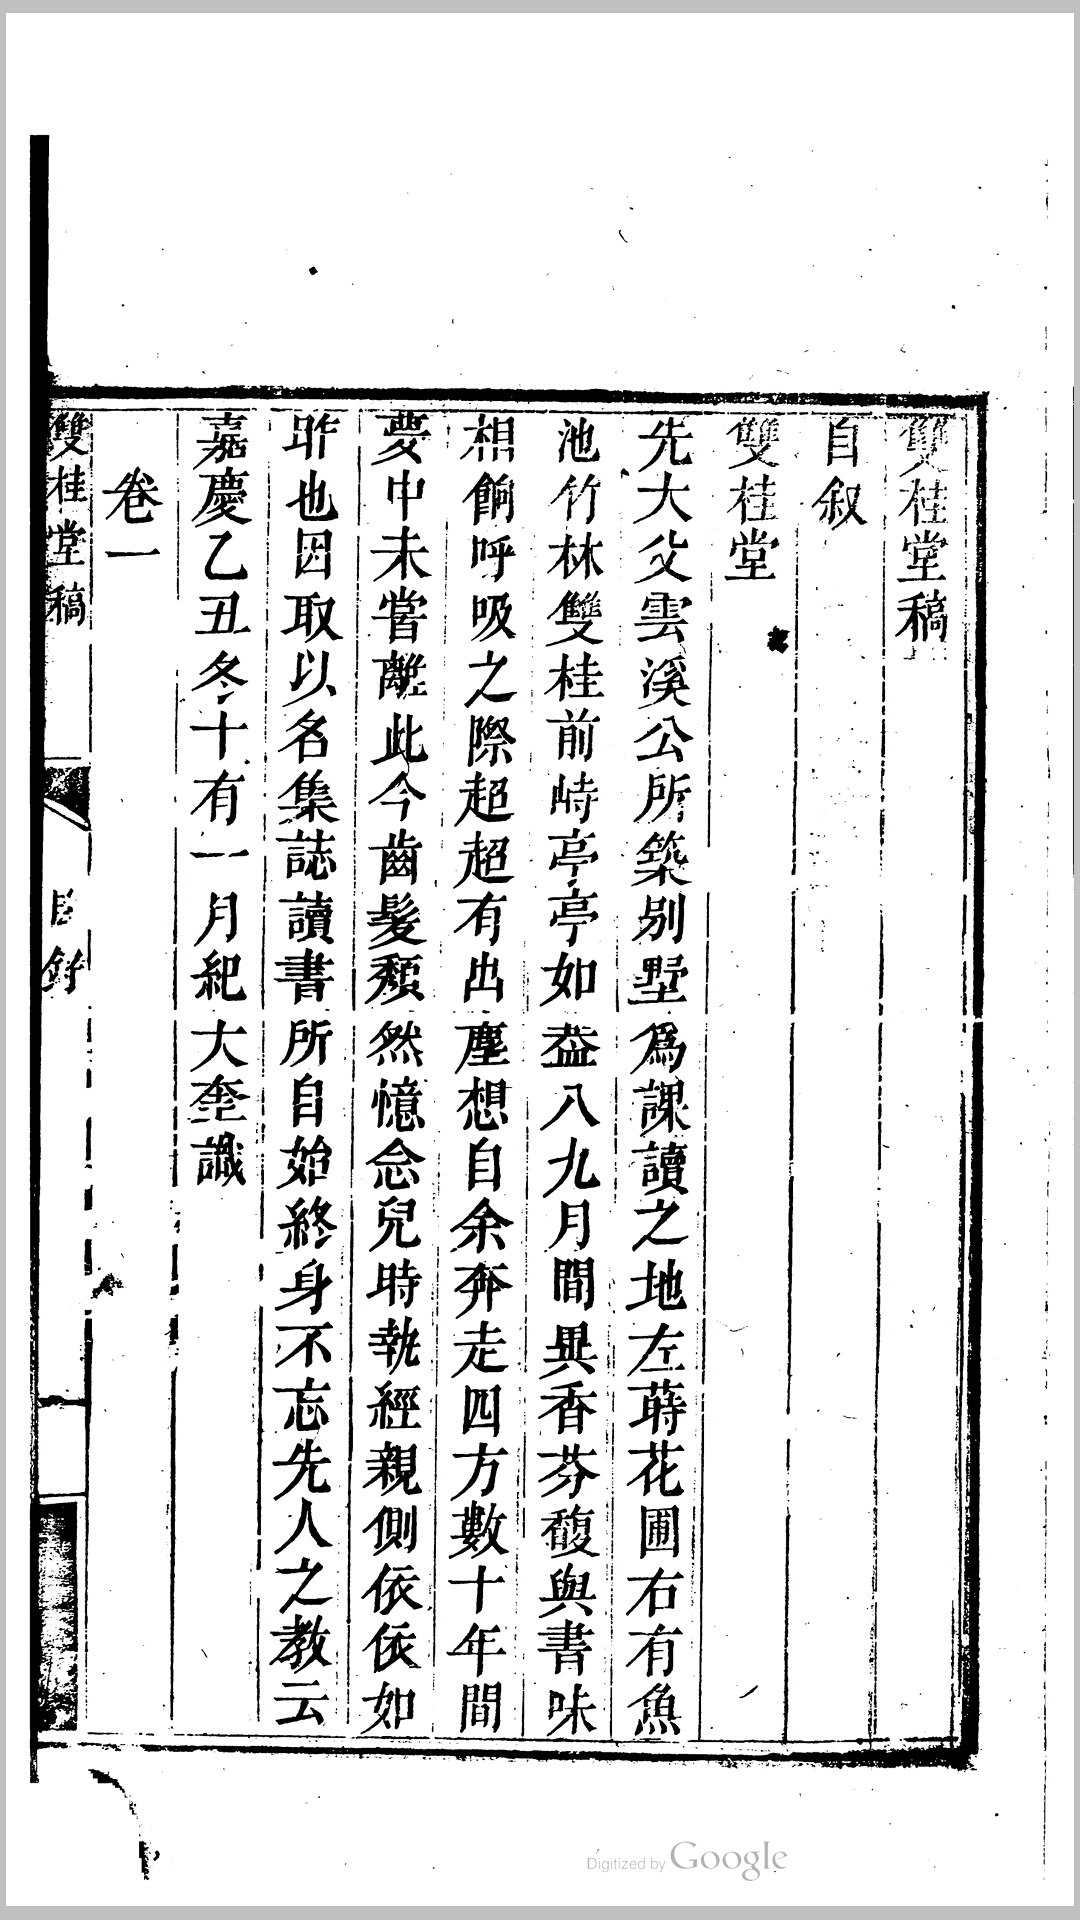 雙桂堂稿
自叙
雙桂堂
先大父雲溪公所築別墅爲課讀之地左蒔花圃右有魚
池竹林雙桂前峙亭亭如葢八九月間異香芬馥與書味
相餉呼吸之際超超有出塵想自余奔走四方數十年間
夢中未嘗離此今齒髮頽然憶念兒時執經親側依依如
昨也因取以名集誌讀書所自始終身不忘先人之教云
嘉慶乙丑冬十有一月紀大奎識
卷一
雙桂堂稿
Digitized by Google